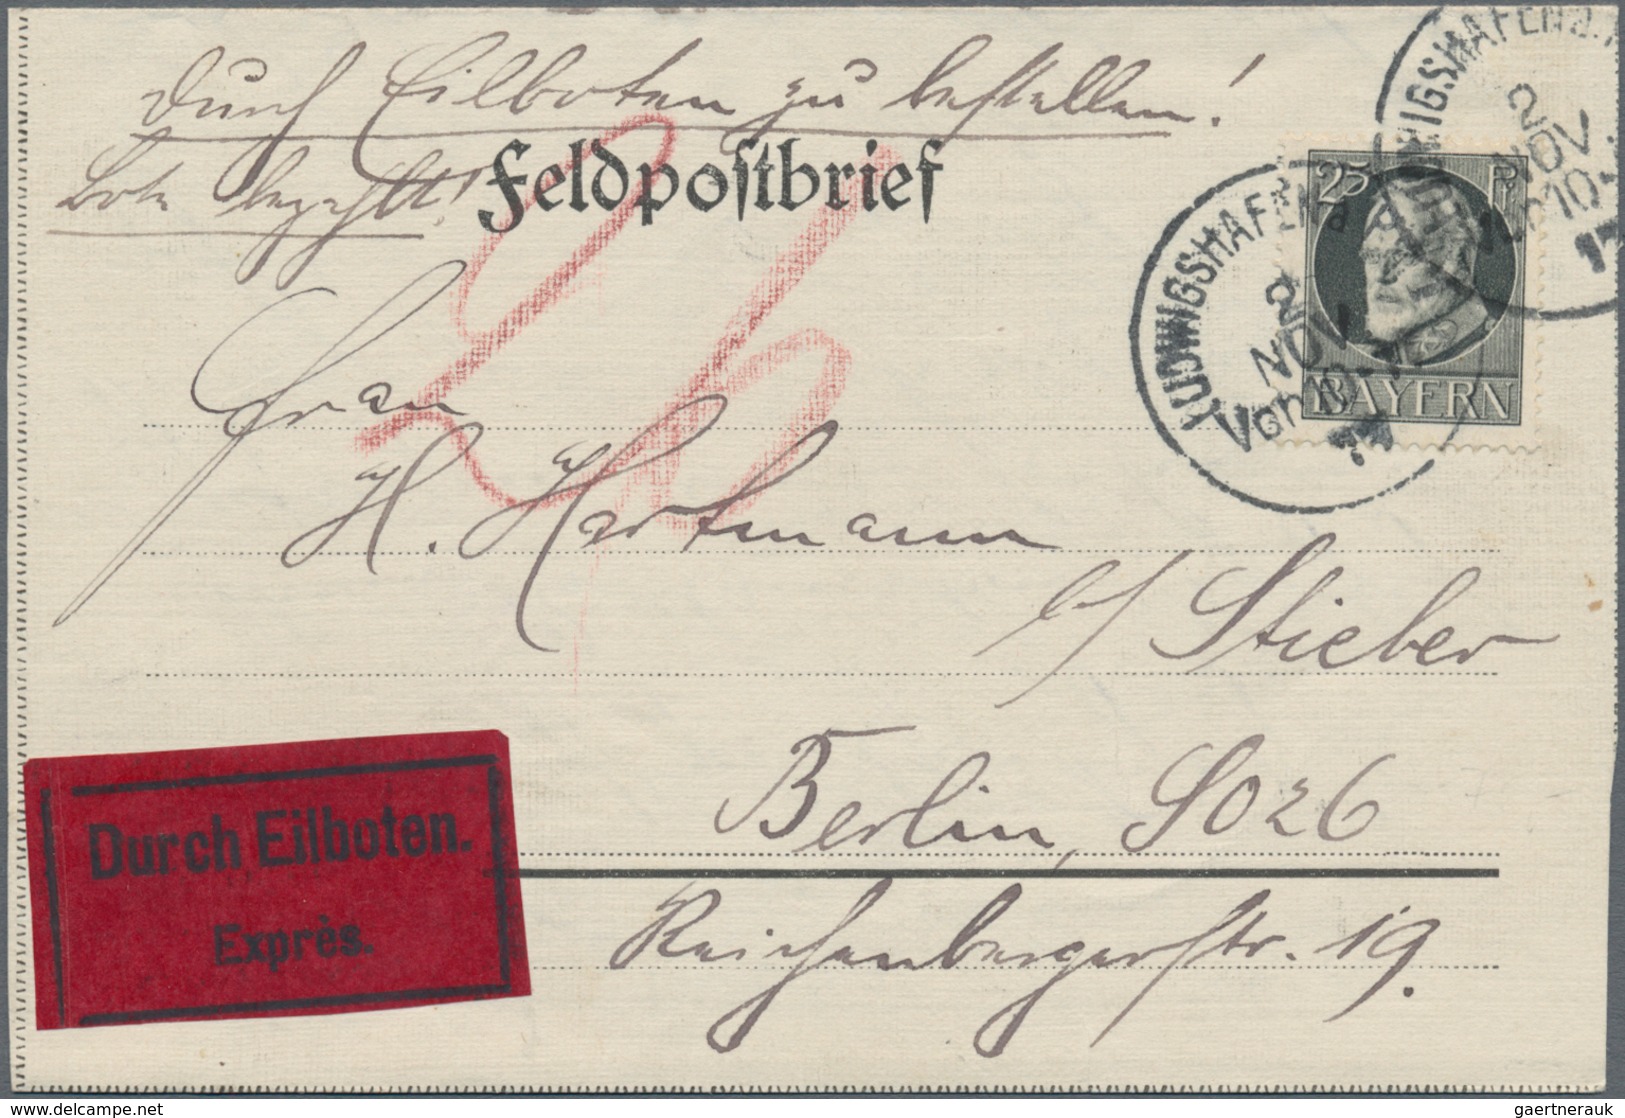 Durch Eilboten zu bestellen!
Bote bezahlt!
Feldpostbrief
LUDWIGSHAFEN a.
2
NOV
Vor 10-
17
25 Pf
BAYERN
LUDWIGSHAFEN
2
NOV
Vor 10-
Frau
H. Hartmann
b/ Stieber
Berlin, SO26
Reichenbergerstr. 19.
Durch Eilboten.
Exprès.
www.delcampe.net
gaertnerauk